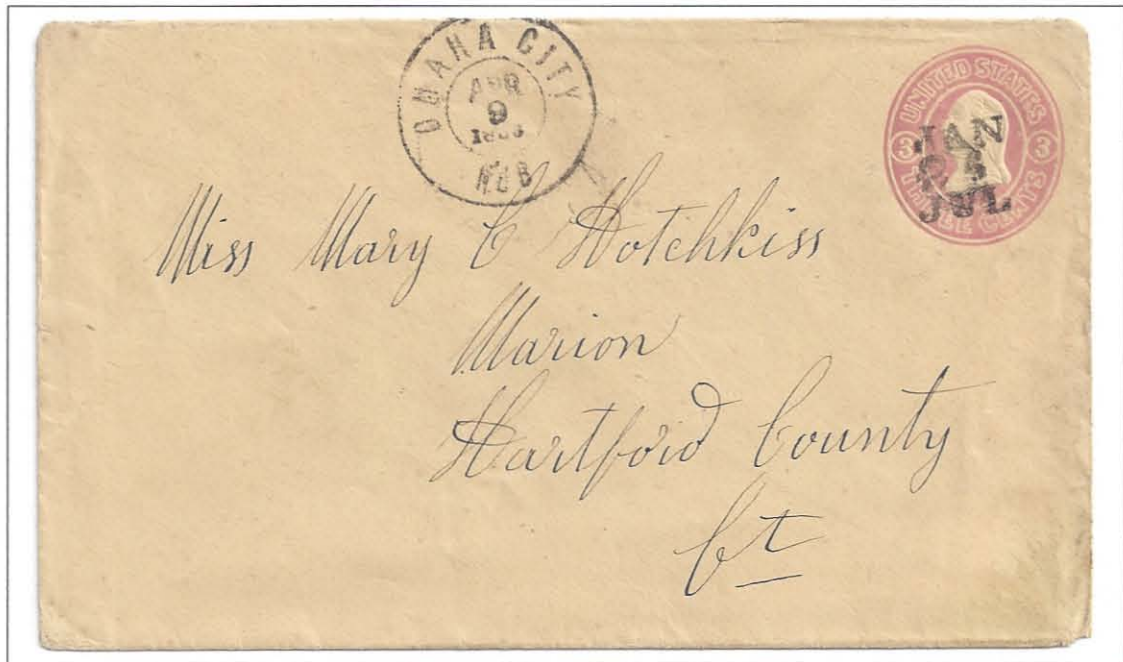 OMAHA CITY
APR
9
NEB
UNITED STATES
3 3
THREE CENTS
JAN
JUL
Miss Mary C Hotchkiss
Marion
Hartford County
Ct